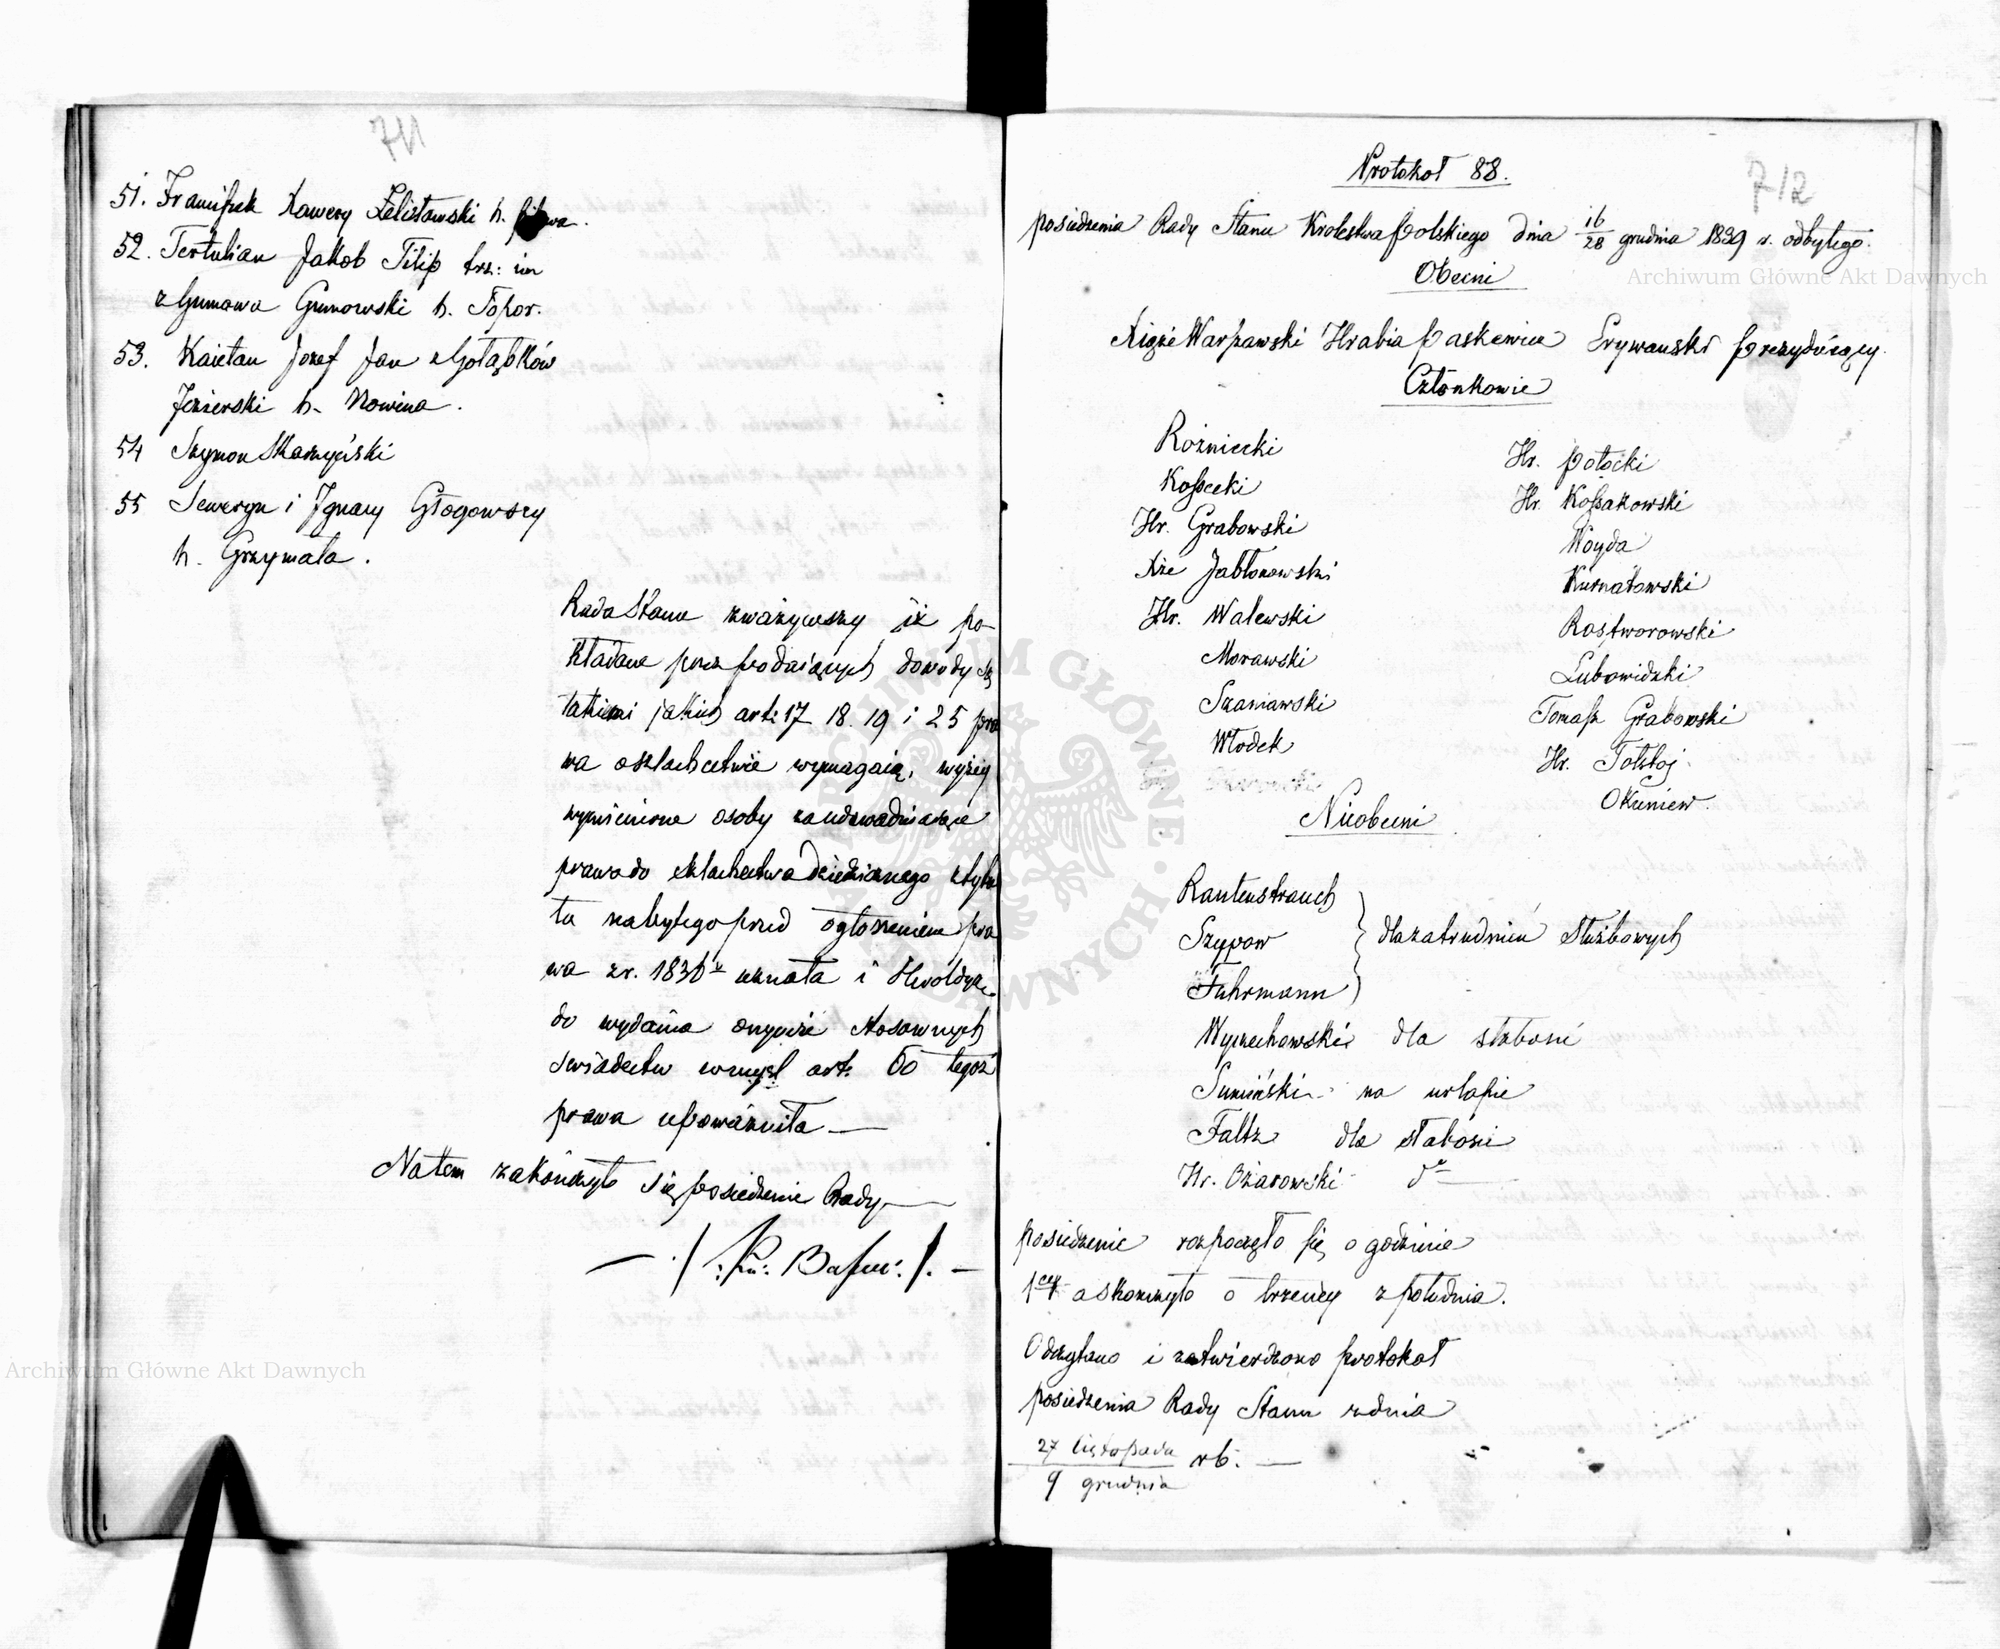 711
51. Franciszek Xawery Zelisławski h.
52. Tertulian Jakob Filip trz: im
z Gumowa Gumowski h. Topor.
53. Kaietan Jozef Jan z Gołąbków
Jezierski h. Nowina.
54 Szymon Skarzyński
55 Seweryn i Ignacy Głogowscy
h. Grzymała.
Rada Stanu zważywszy iż po-
kładane przez podaiących dowody są
takiemi jakich art: 17 18. 19 i 25 pra
wa o szlachectwie wymagaią, wyżey
wymienione osoby za udowadniaiące
prawa do szlachectwa dziedzicznego z tytu
łu nabytego przed ogłoszeniem pra
wa z r. 1836 uznała i Heroldyą
do wydania onymże stosownych
swiadectw w mysl art: 60 tegoż
prawa upoważniła —
Na tem zakończyło się posiedzenie Rady —
Protokoł 88.
712
posiedzenia Rady Stanu Krolestwa Polskiego dnia 16/28 grudnia 1839 r. odbytego.
Obecni
Xiąże Warszawski Hrabia Paskewicz Erywanski Prezyduiący.
Członkowie
Rożniecki
Kossecki
Hr. Grabowski
Xże Jabłonowski
Hr. Walewski
Morawski
Szaniawski
Włodek
Hr. Potocki
Hr. Kossakowski
Woyda
Kurnatowski
Rostworowski
Lubowidzki
Tomasz Grabowski
Hr. Tołstoj
Okuniew.
Nieobecni
Rautenstrauch
Szypow
Fuhrmann
dla zatrudnień służbowych
Wyczechowski dla słabosci
Sumiński na urlopie
Faltz dla słabości
Hr. Ożarowski do
posiedzenie rozpoczęło się o godzinie
1ey a skończyło o trzeciey z południa.
Odczytano i zatwierdzono protokoł
posiedzenia Rady Stanu z dnia
27 listopada / 9 grudnia rb. —
Archiwum Główne Akt Dawnych
Archiwum Główne Akt Dawnych
ARCHIWUM GŁÓWNE AKT DAWNYCH